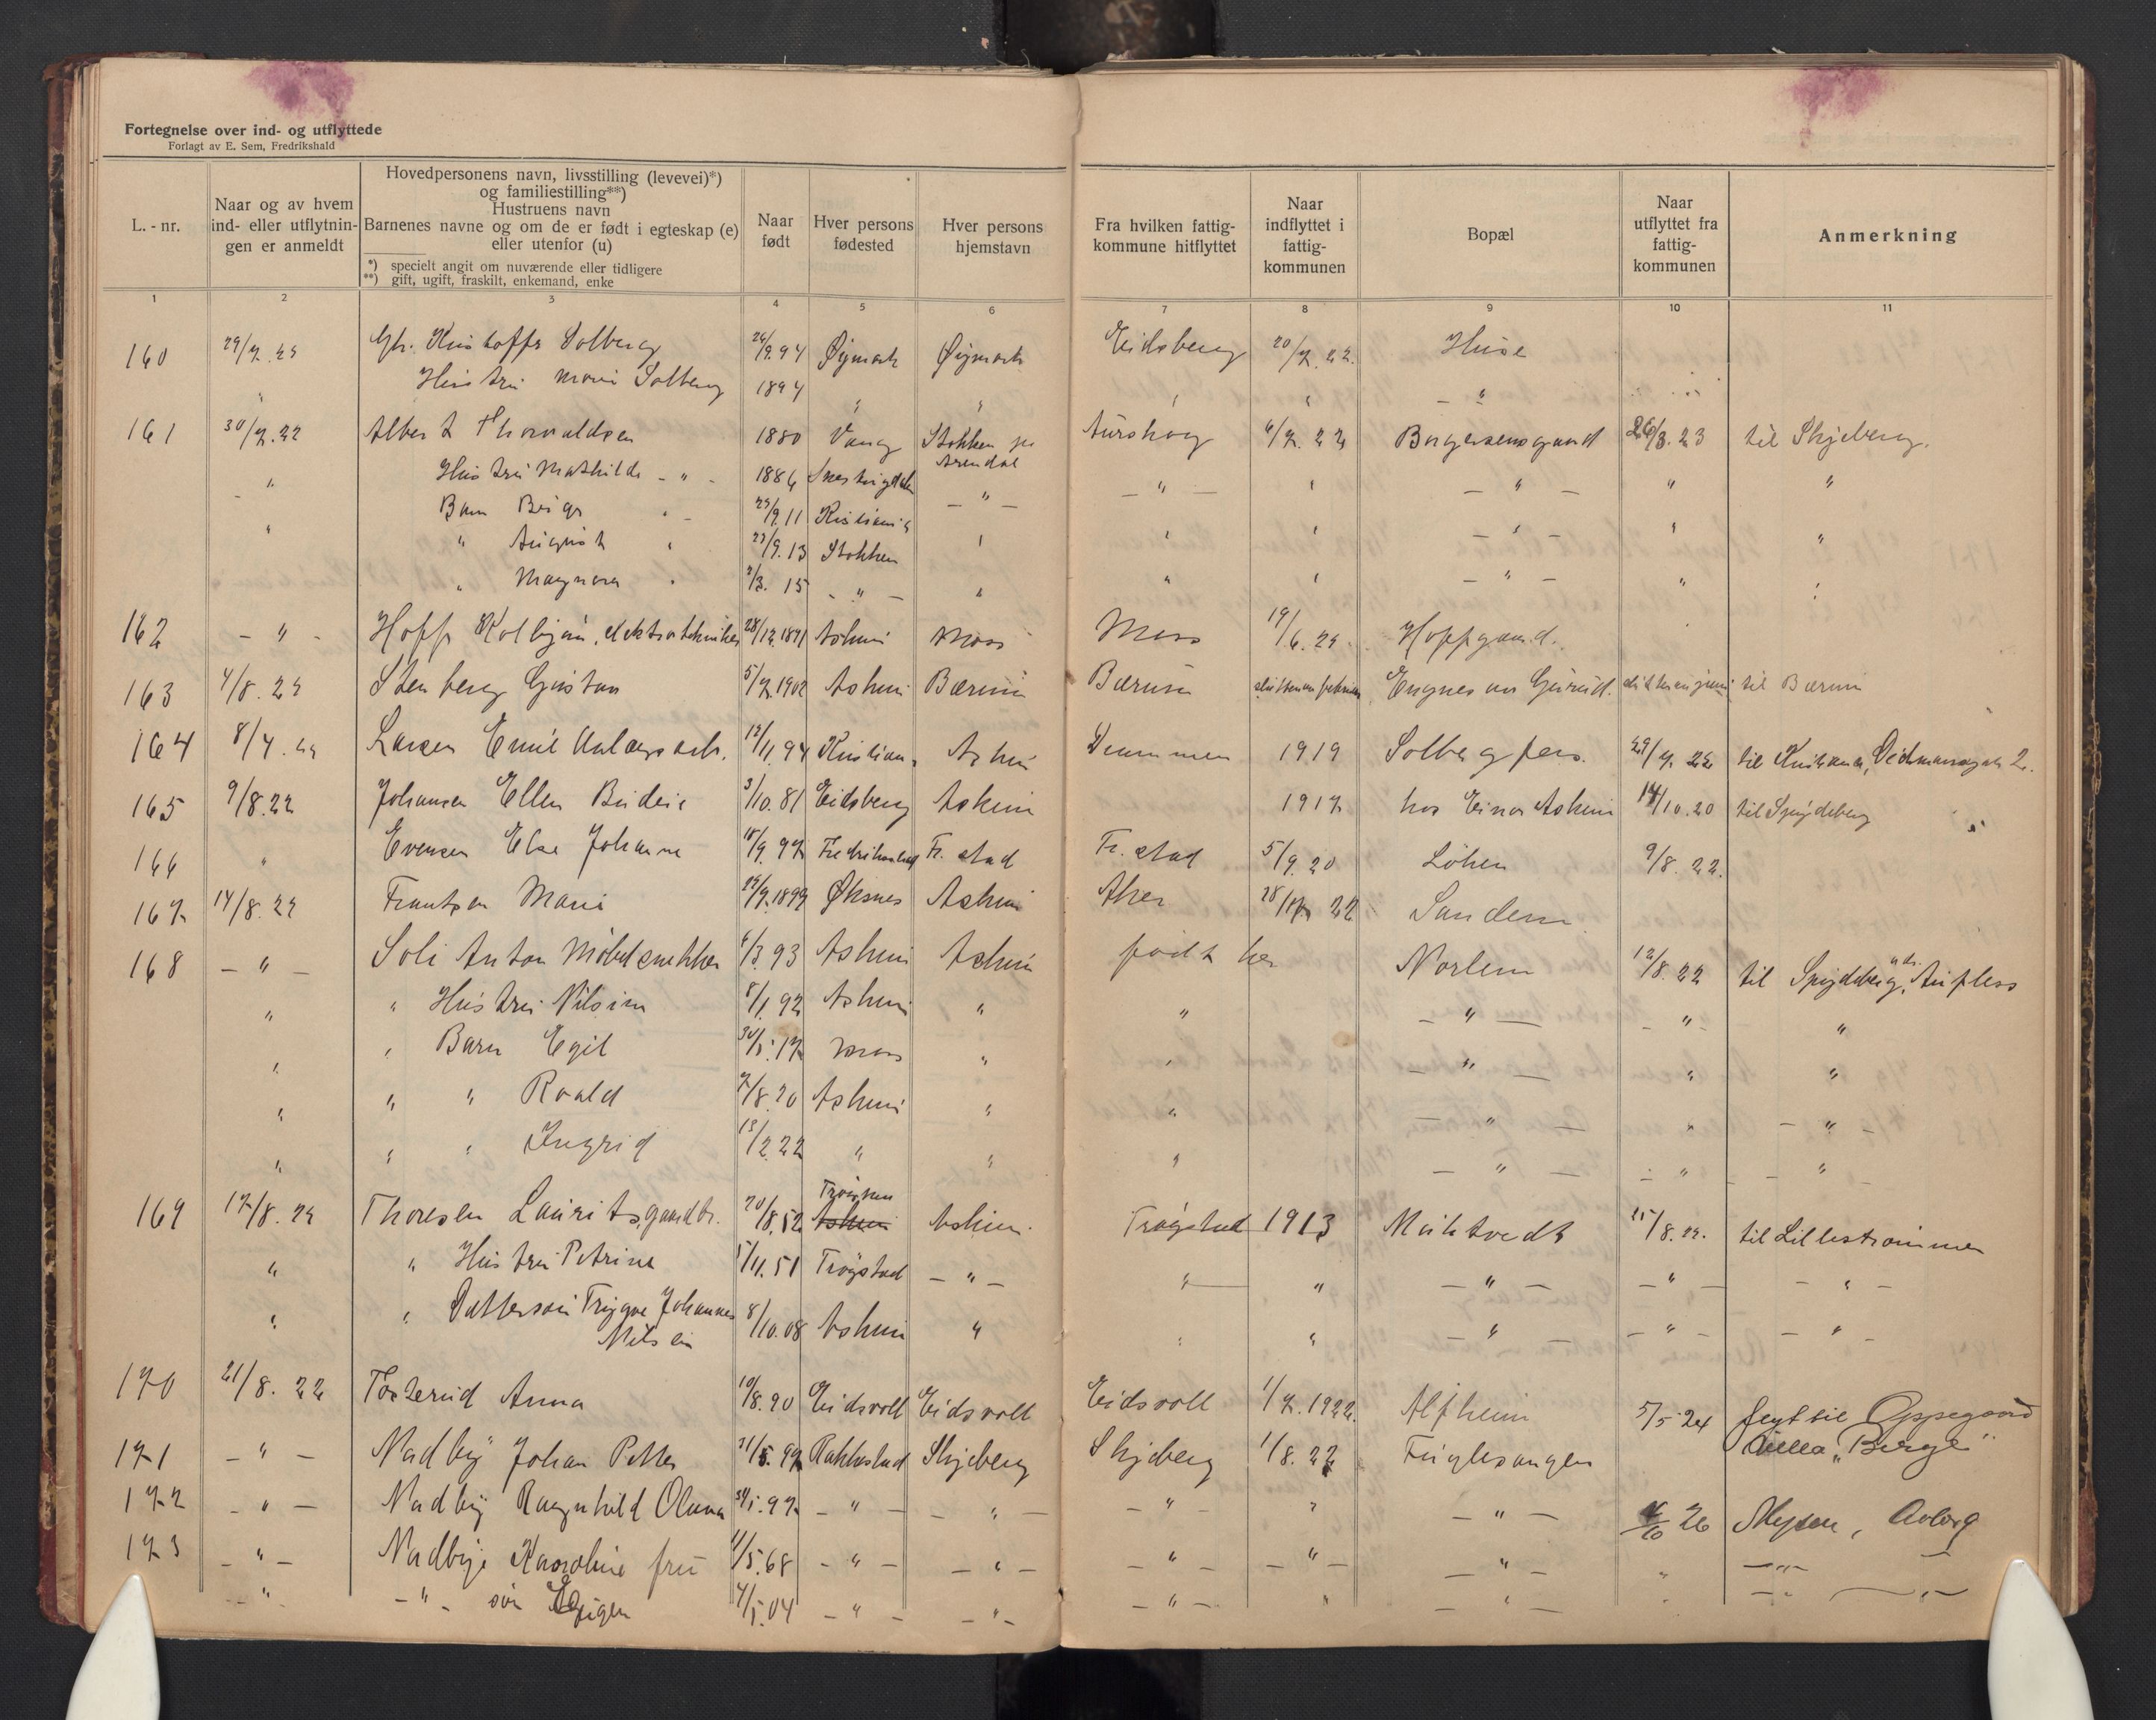 Fortegnelse over ind- og utflyttede
Forlagt av E. Sem, Fredrikshald
L. - nr.
Naar og av hvem ind- eller utflytningen er anmeldt
Hovedpersonens navn, livsstilling (levevei)*) og familiestilling**)
Hustruens navn
Barnenes navne og om de er født i egteskap (e) eller utenfor (u)
*) specielt angit om nuværende eller tidligere
**) gift, ugift, fraskilt, enkemand, enke
Naar født
Hver persons fødested
Hver persons hjemstavn
Fra hvilken fattigkommune hitflyttet
Naar indflyttet i fattigkommunen
Bopæl
Naar utflyttet fra fattigkommunen
Anmerkning
1 2 3 4 5 6 7 8 9 10 11
160 29/7.22 Kristoffer Solberg 9.94 Øymark Øymark Eidsberg 20/7.22. Huse
" Hustru Marie Solberg 1894 " " " " — " —
161 30/7.22 Albert Thorvaldsen 1880 Vang Stokken pr Arendal Aurskog 6/7.22 Borgersensgaard 26/8.23 til Skjeberg.
— " Hustru Mathilde — " — 1886 — " — — " — " — " — " "
" Barn Birger " — 9.11 Kristiania
" August " 23/9.13 Stokken " " " — " — " "
" Magnora " 2/3.15 — " — " " " — " — " "
162 — " — Hoff Kolbjørn, elektrotekniker 28/12.1891 Askim Moss Moss 19/6.22 Hoffgaard.
163 4/8.22 Stenberg Gustav 5/7.1902 Askim Bærum Bærum Engnes av Guruld. til Bærum
164 8/7.22 Larsen Emil Anlægsarb. 12/11.94 Kristiania Askim Drammen 1919 Solbergfoss. 29/7.22 til Kristiania, Deichmansgate 2.
165 9/8.22 Johansen Ellen Budeie 3/10.81 Eidsberg Askim 1917 hos Einar Askim 14/10.20 til Spydeberg
166 " Evensen Else Johanne 18/9.97 Fredrikstad Fr. stad Fr. stad 5/9.20 Løken 9/8.22.
167 14/8.22 Frantzen Marie 1899 Øksnes Askim Aker 22 Sandem
168 — " — Soli Anton Møbelsnekker 6/3.93 Askim Askim født her Norlem 12/8.22 til Spydeberg,
" " Hustru Nilsine 8/1.92 Askim " " — " — — " — "
" " Barn Egil 30/5.17 Moss " " — " — " "
" " " Roald 7/8.20 Askim " " — " — " — " —
" " " Ingrid 13/2.22 " " " — " — — " — — " —
169 17/8.22 Thoresen Laurits, gaardbr. 20/8.52 Askim Askim. Trøgstad 1913 Muktvedt 15/8.22. til Lillestrømmen
" " Hustru Petrine 5/11.51 Trøgstad — " — " — " — " — — " — — " —
" " Dattersøn Trygve Johannes Nilsen 8/10.08 Askim " " " — " — — " — — " —
170 21/8.22 Tosterud Anna 10/8.90 Eidsvold Eidsvold Eidsvold 1/7.1922. Alfheim 5/5-24 flyt til Oppegaard Villa „Berge"
171 — " — Nadby Johan Petter 21/5.97 Rakkestad Skjeberg Skjeberg 1/8.22 Fuglesangen
172 — " — Nadby Ragnhild Oluna 30/1.97 — " — — " — — " — " — " — 4/10 26 Mysen,
173 — " — Nadbye Karoline fru 11/5.68 — " — — " — — " — — " — — " — " — " —
— " — — " — søn 4/1.04 — " — — " — — " — " — " — " — " —